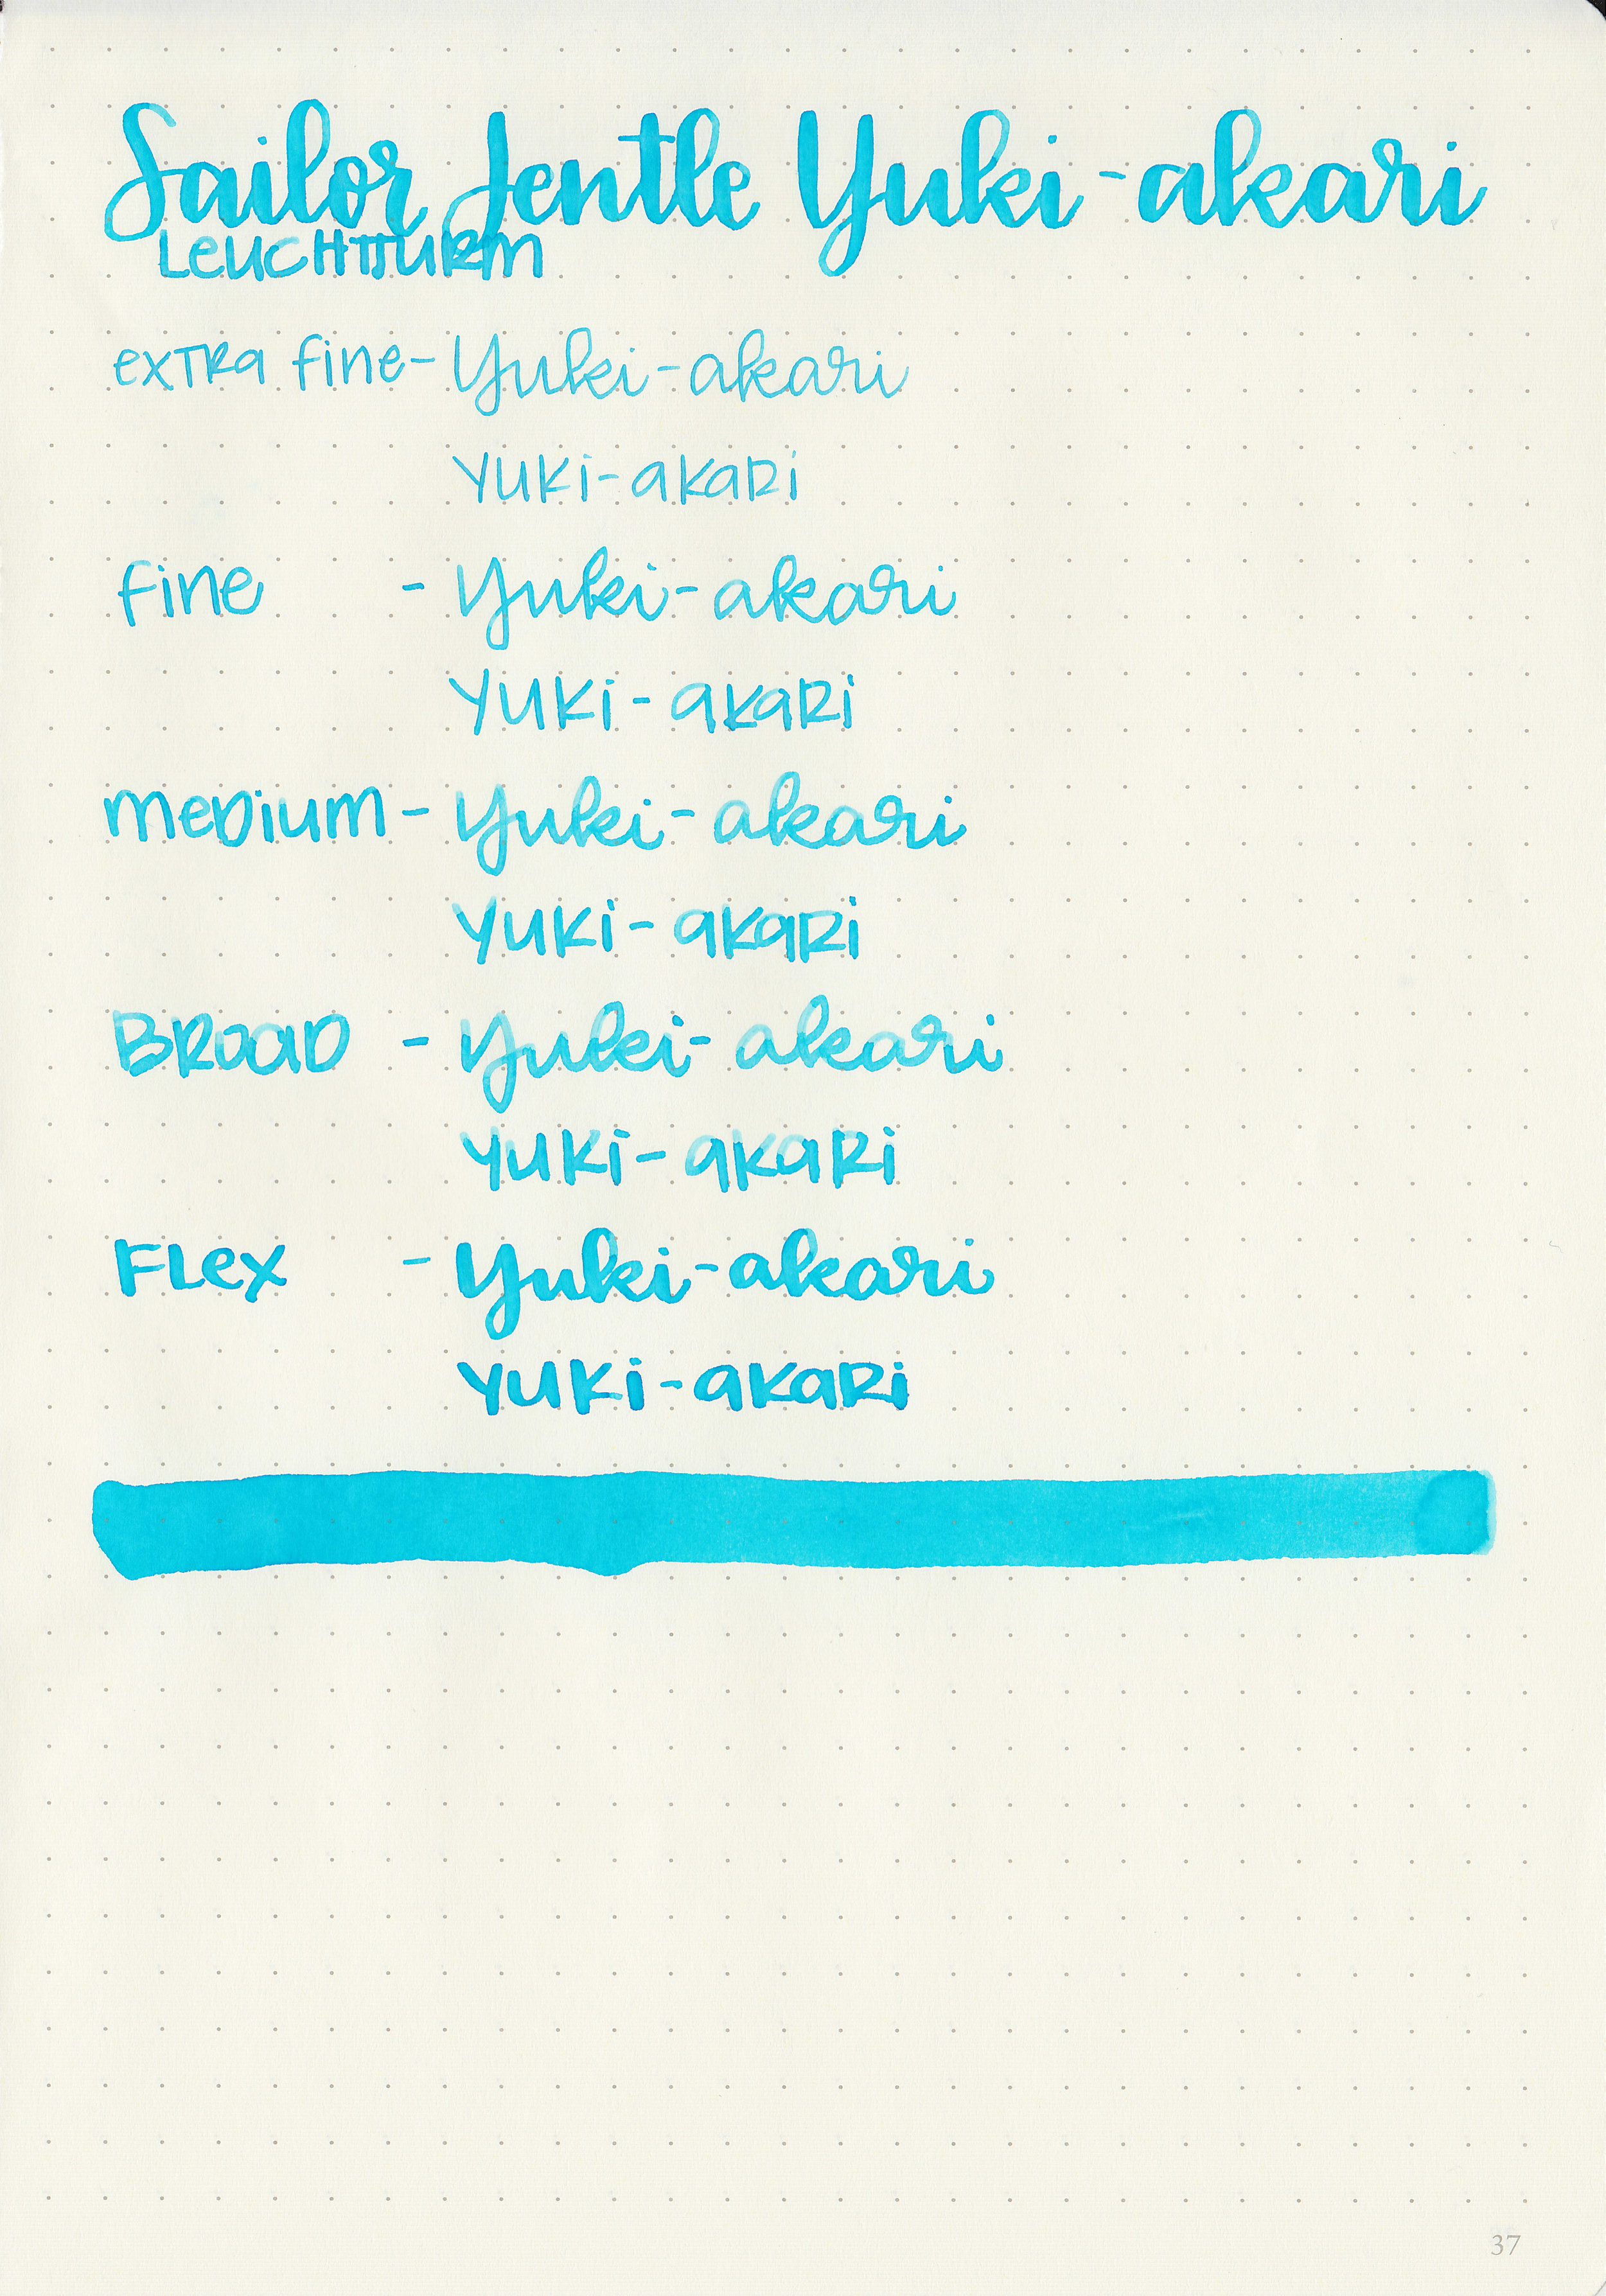 Sailor Jentle Yuki-akari
Leuchtturm
extra fine - Yuki-akari
Yuki-akari
fine - Yuki-akari
Yuki-akari
medium - Yuki-akari
Yuki-akari
Broad - Yuki-akari
Yuki-akari
Flex - Yuki-akari
Yuki-akari
37